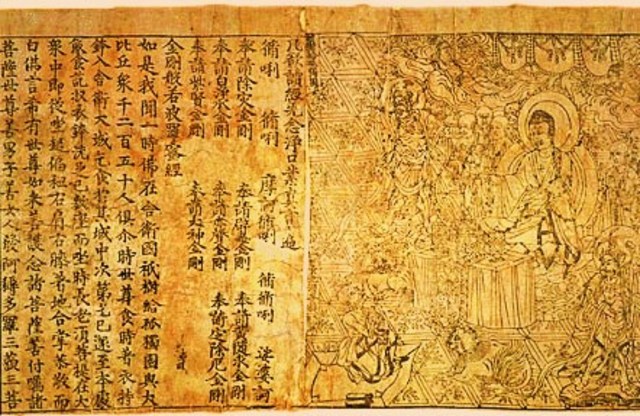 凡欲讀經先念淨口業真言一遍
脩唎 脩唎 摩訶脩唎 脩脩唎 娑婆訶
奉請除灾金剛 奉請辟毒金剛 奉請黃隨求金剛
奉請白淨水金剛 奉請赤聲金剛 奉請定除厄金剛
奉請紫賢金剛 奉請大神金剛
金剛般若波羅蜜經
如是我聞一時佛在舍衛國祇樹給孤獨園與大
比丘衆千二百五十人俱尒時世尊食時著衣持
鉢入舍衛大城乞食於其城中次第乞已還至本處
飯食訖收衣鉢洗足已敷座而坐時長老須菩提在大
衆中即從座起偏袒右肩右膝著地合掌恭敬而
白佛言希有世尊如來善護念諸菩薩善付囑諸
菩薩世尊善男子善女人發阿耨多羅三藐三菩